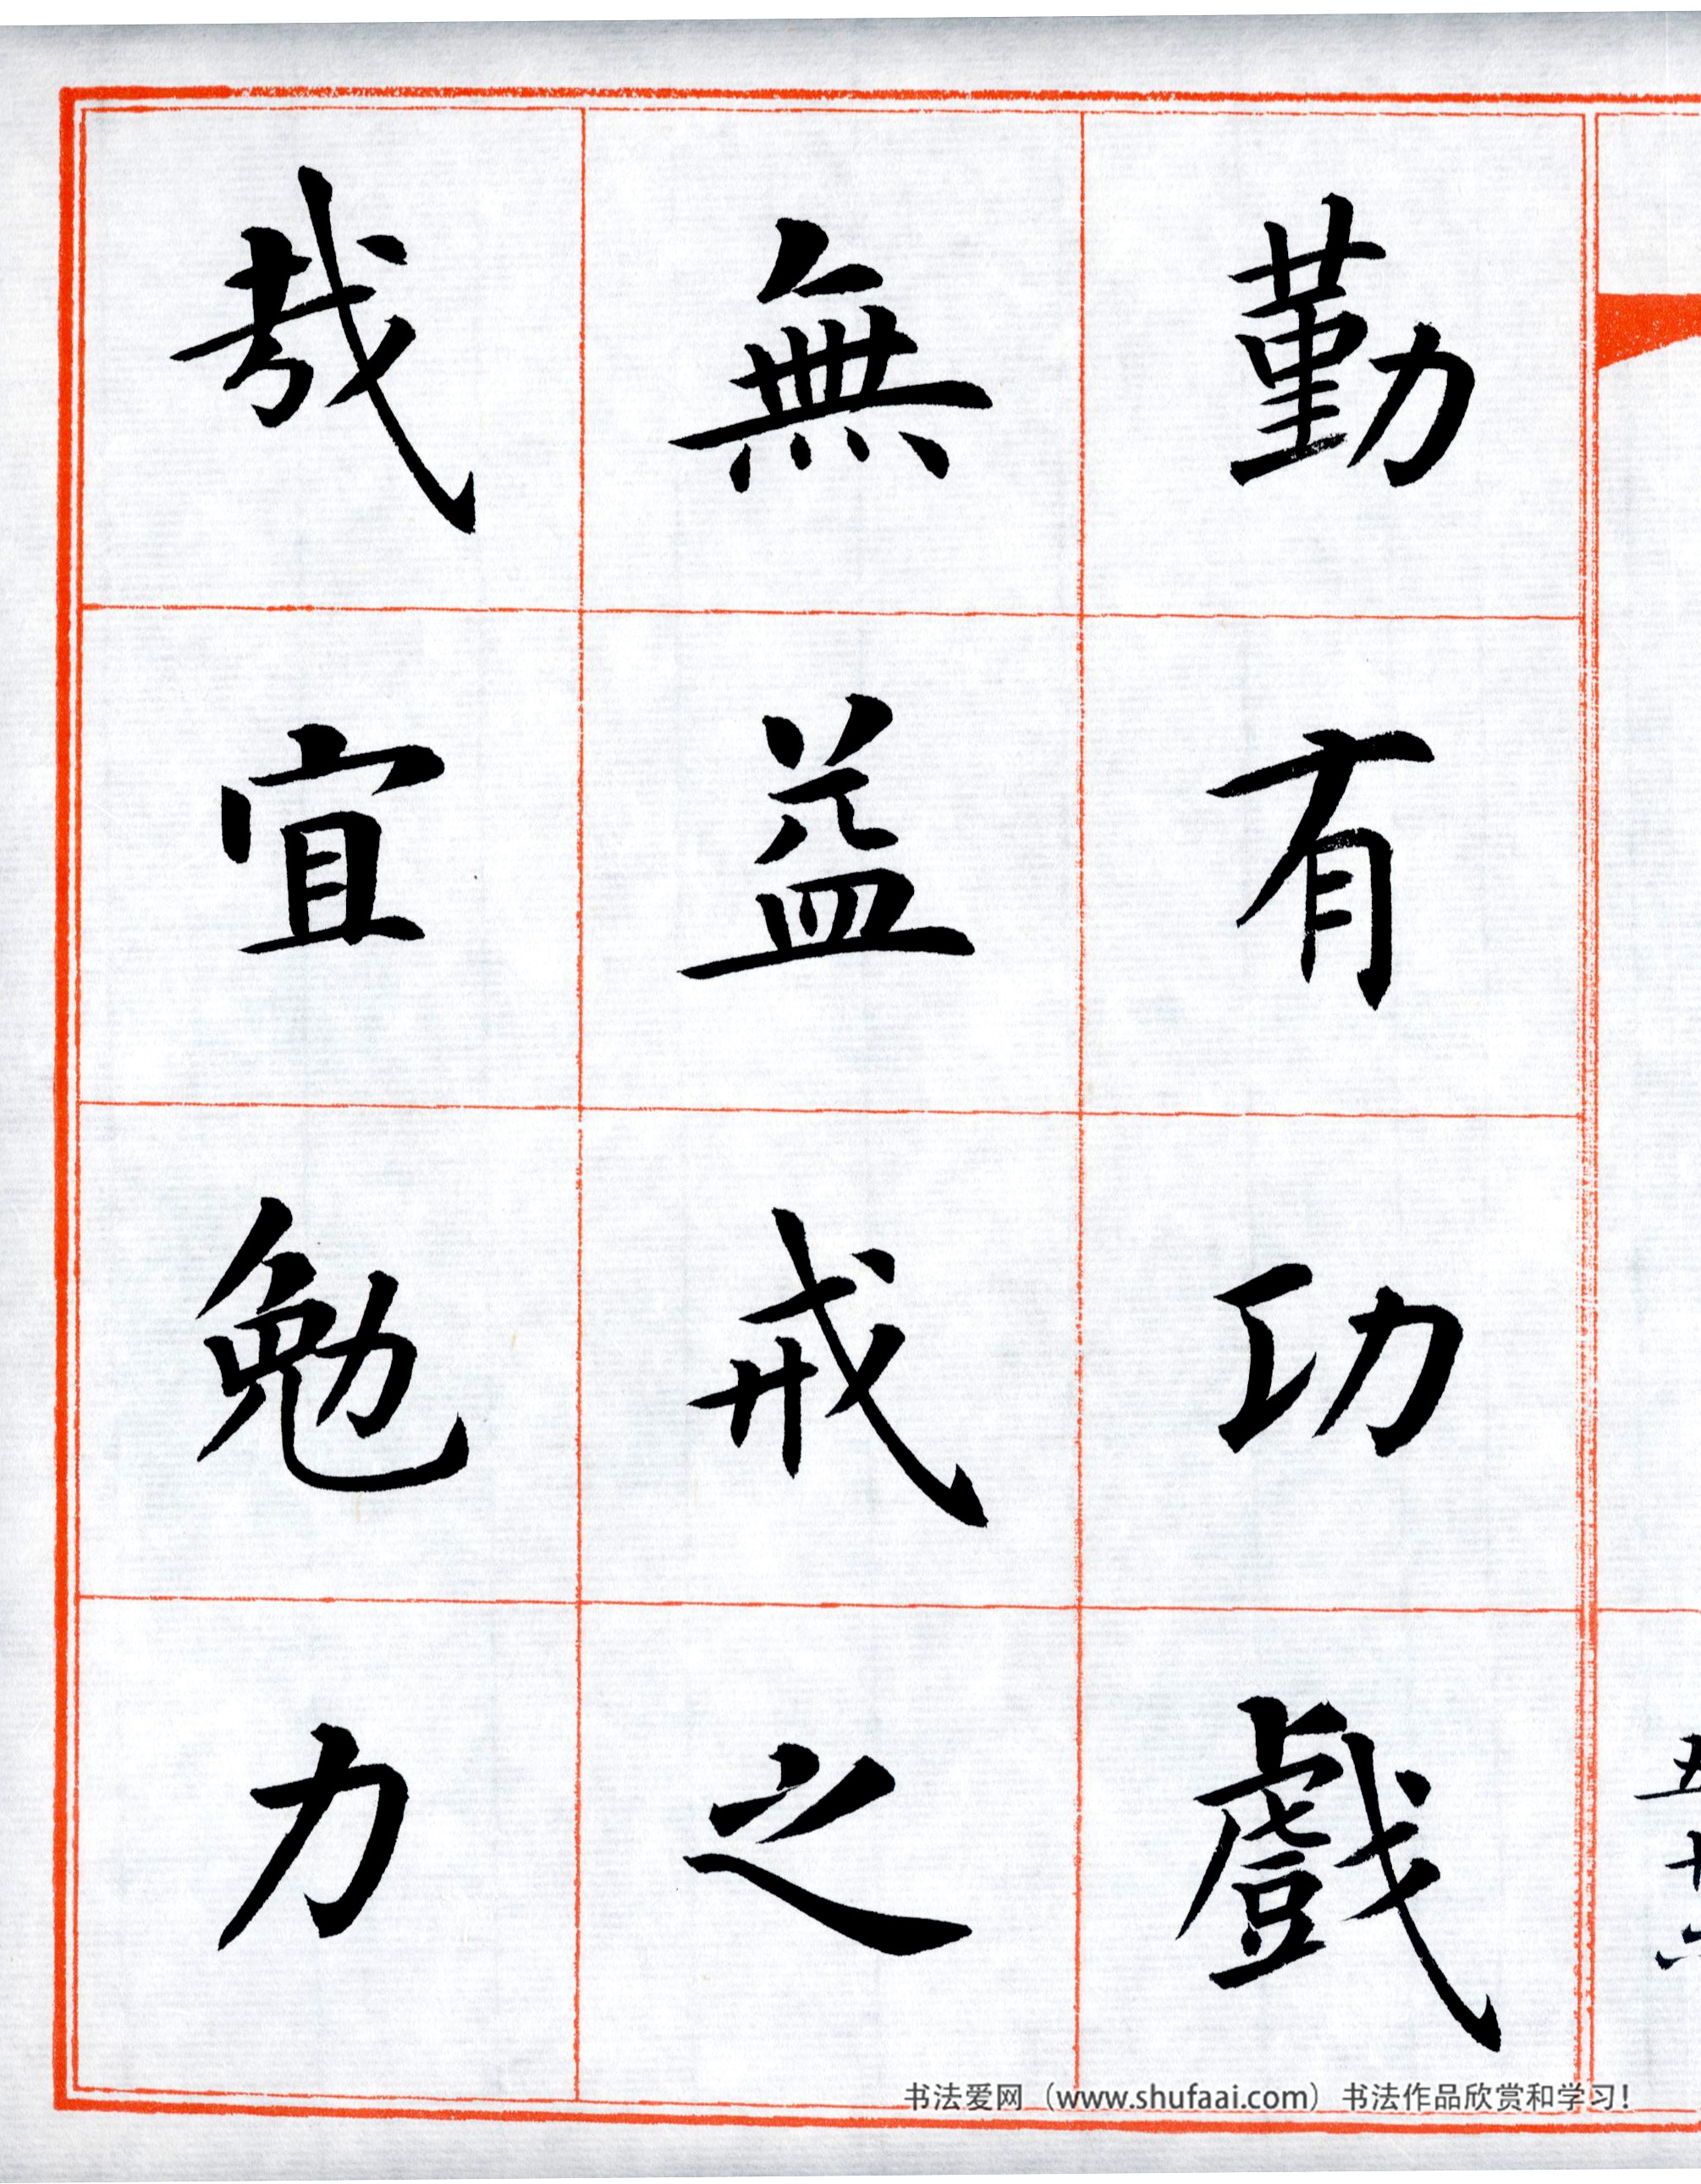 勤有功戲
無益戒之
哉宜勉力
书法爱网（www.shufaai.com）书法作品欣赏和学习！